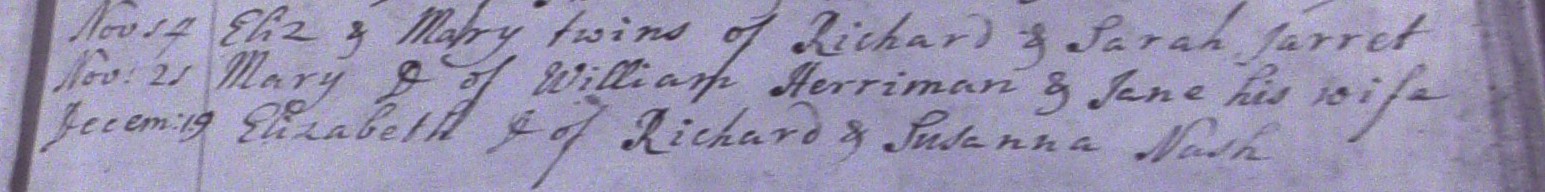 Nov: 14 Eliz & Mary twins of Richard & Sarah Jarret
Nov: 21 Mary D of William Herriman & Jane his wife
Decem: 19 Elizabeth D of Richard & Susanna Nash